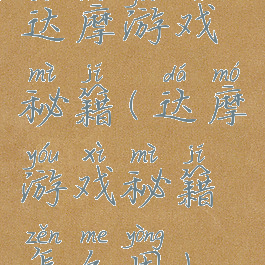 达摩游戏
mì jí dá mó
秘籍(达摩
yóu xì mì jí
游戏秘籍
zěn me yòng
怎么用)